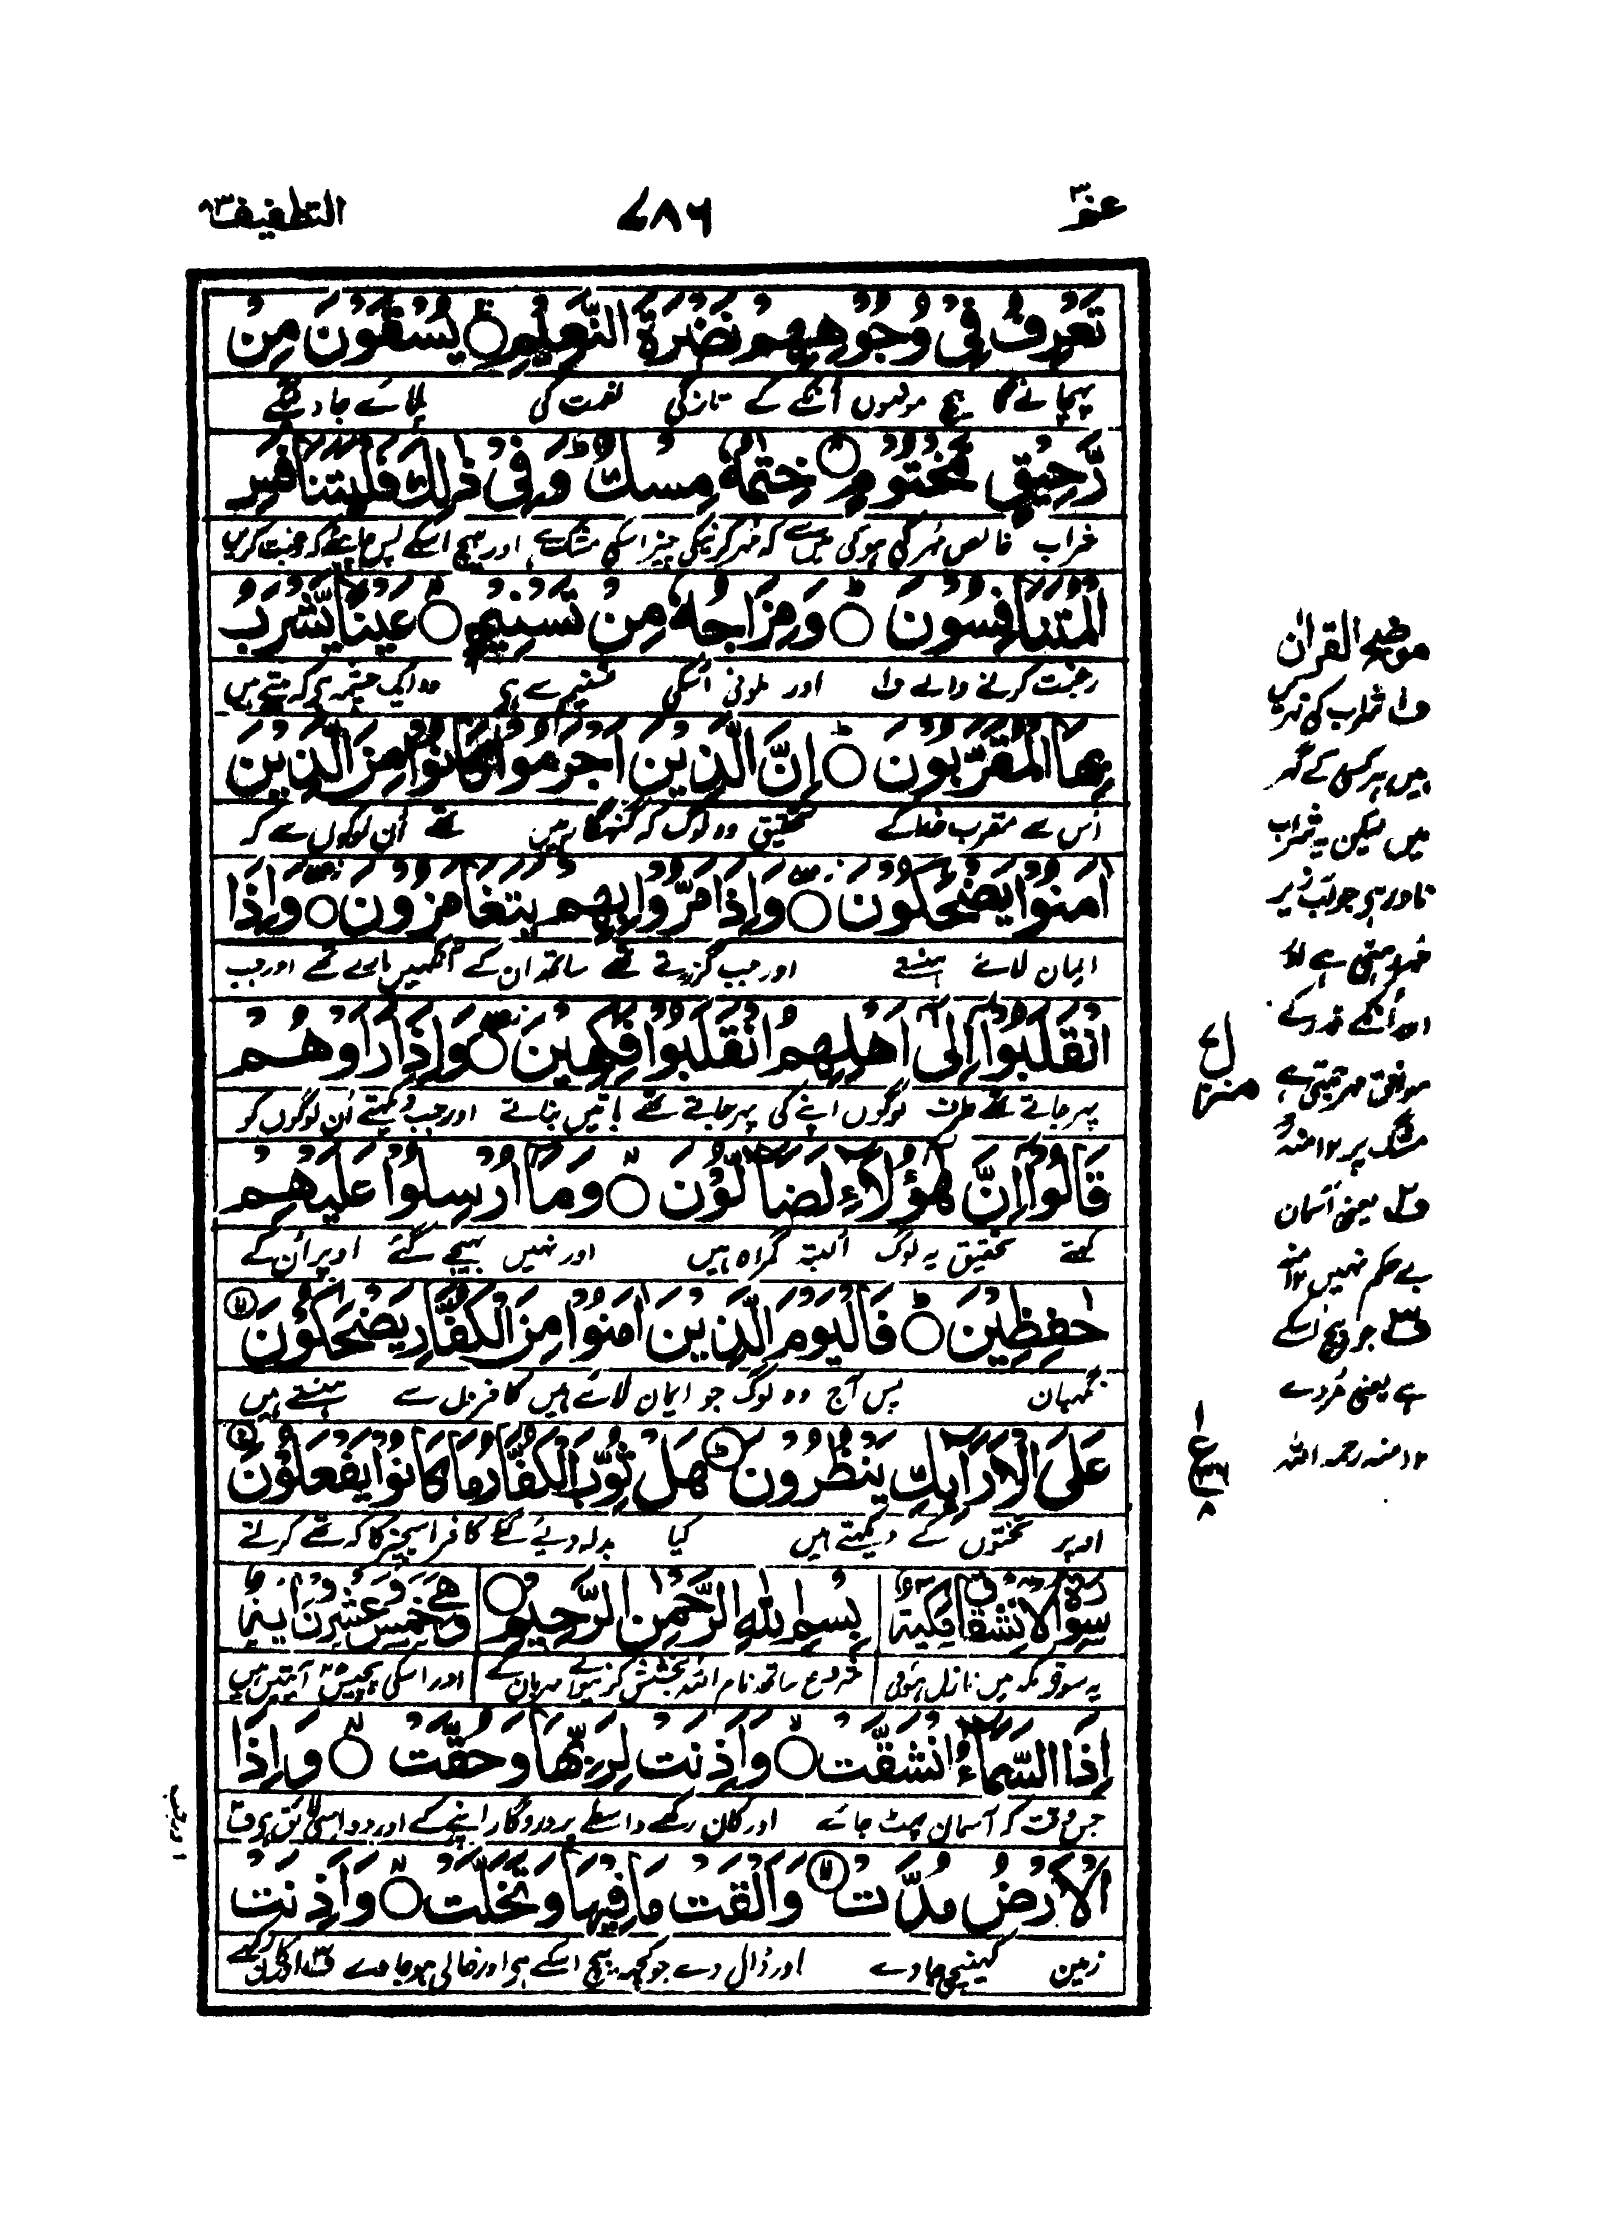 عمّ ٣٠
٧٨٦
التطفيف ٨٣
تَعْرِفُ فِيْ وُجُوْهِهِمْ نَضْرَةَ النَّعِيْمِ ○ يُسْقَوْنَ مِنْ
پہچانے گا بیچ مونہوں اُنکے کے تازگی نعمت کی پلائے جاوینگے
رَّحِيْقٍ مَّخْتُوْمٍ ○ خِتٰمُهٗ مِسْكٌ ؕ وَفِيْ ذٰلِكَ فَلْيَتَنَافَسِ
شراب خالص مُہر کی ہوئی میں سے کہ مُہر کرنیکی چیز اسکی مشک ہے اور بیچ اسکے پس چاہیئے کہ رغبت کریں
الْمُتَنَافِسُوْنَ ○ وَمِزَاجُهٗ مِنْ تَسْنِيْمٍ ○ عَيْنًا يَّشْرَبُ
رغبت کرنے والے ف اور ملونی اُسکی تسنیم سے ہی وہ ایک چشمہ ہی کہ پیتے ہیں
بِهَا الْمُقَرَّبُوْنَ ○ اِنَّ الَّذِيْنَ اَجْرَمُوْا كَانُوْا مِنَ الَّذِيْنَ
اُس سے مقرب خدا کے تحقیق وہ لوگ کہ گنہگار ہیں تھے اُن لوگوں سے کہ
اٰمَنُوْا يَضْحَكُوْنَ ○ وَاِذَا مَرُّوْا بِهِمْ يَتَغَامَزُوْنَ ○ وَاِذَا
ایمان لائے ہنستے اور جب گزرتے تھے ساتھ ان کے آنکھیں مارتے تھے اور جب
انْقَلَبُوْۤا اِلٰۤى اَهْلِهِمُ انْقَلَبُوْا فَكِهِيْنَ ○ وَاِذَا رَاَوْهُمْ
پھر جاتے تھے طرف لوگوں اپنے کی پھر جاتے تھے باتیں بناتے اور جب دیکھتے اُن لوگوں کو
قَالُوْۤا اِنَّ هٰۤؤُلَآءِ لَضَآلُّوْنَ ○ وَمَاۤ اُرْسِلُوْا عَلَيْهِمْ
کہتے تحقیق یہ لوگ البتہ گمراہ ہیں اور نہیں بھیجے گئے اوپر اُن کے
حٰفِظِيْنَ ○ فَالْيَوْمَ الَّذِيْنَ اٰمَنُوْا مِنَ الْكُفَّارِ يَضْحَكُوْنَ
نگہبان پس آج وہ لوگ جو ایمان لائے ہیں کافروں سے ہنستے ہیں
عَلَى الْاَرَآئِكِ يَنْظُرُوْنَ ○ هَلْ ثُوِّبَ الْكُفَّارُ مَا كَانُوْا يَفْعَلُوْنَ
اوپر تختوں کے دیکھتے ہیں کیا بدلہ دیئے گئے کافر اسچیز کا کہ تھے کرتے
سورة الانشقاق مکیة بِسْمِ اللّٰهِ الرَّحْمٰنِ الرَّحِيْمِ ○ وهى خمس وعشرون اية
یہ سورۃ مکہ میں نازل ہوئی شروع ساتھ نام اللہ بخشش کرنیوالے مہربان کے اور اسکی پچیس آیتیں ہیں
اِذَا السَّمَآءُ انْشَقَّتْ ○ وَاَذِنَتْ لِرَبِّهَا وَحُقَّتْ ○ وَاِذَا
جس وقت کہ آسمان پھٹ جائے اور کان رکھے واسطے پروردگار اپنے کے اور وہ اسی لائق ہی ف
الْاَرْضُ مُدَّتْ ○ وَاَلْقَتْ مَا فِيْهَا وَتَخَلَّتْ ○ وَاَذِنَتْ
زمین کھینچی جاوے اور ڈال دے جو کچھ بیچ اسکے ہی اور خالی ہو جاوے ف اور کان رکھے
اور جب
موضح القرآن
ف شراب کی نہریں
ہیں ہر کسی کے گھر
میں لیکن یہ شراب
نادر ہی جو لب پر
مُہر رہتی ہے
اور اُنکے قدر کے
موافق مہر جمتی ہے
مشک پر ١٢ منہ
ف یعنی آسمان
بے حکم نہیں ١٢ منہ
ف جو بیچ اسکے
ہے یعنی مُردے
١٢ منہ رحمہ اللہ
منزل ٧
ع
٣٦
٨